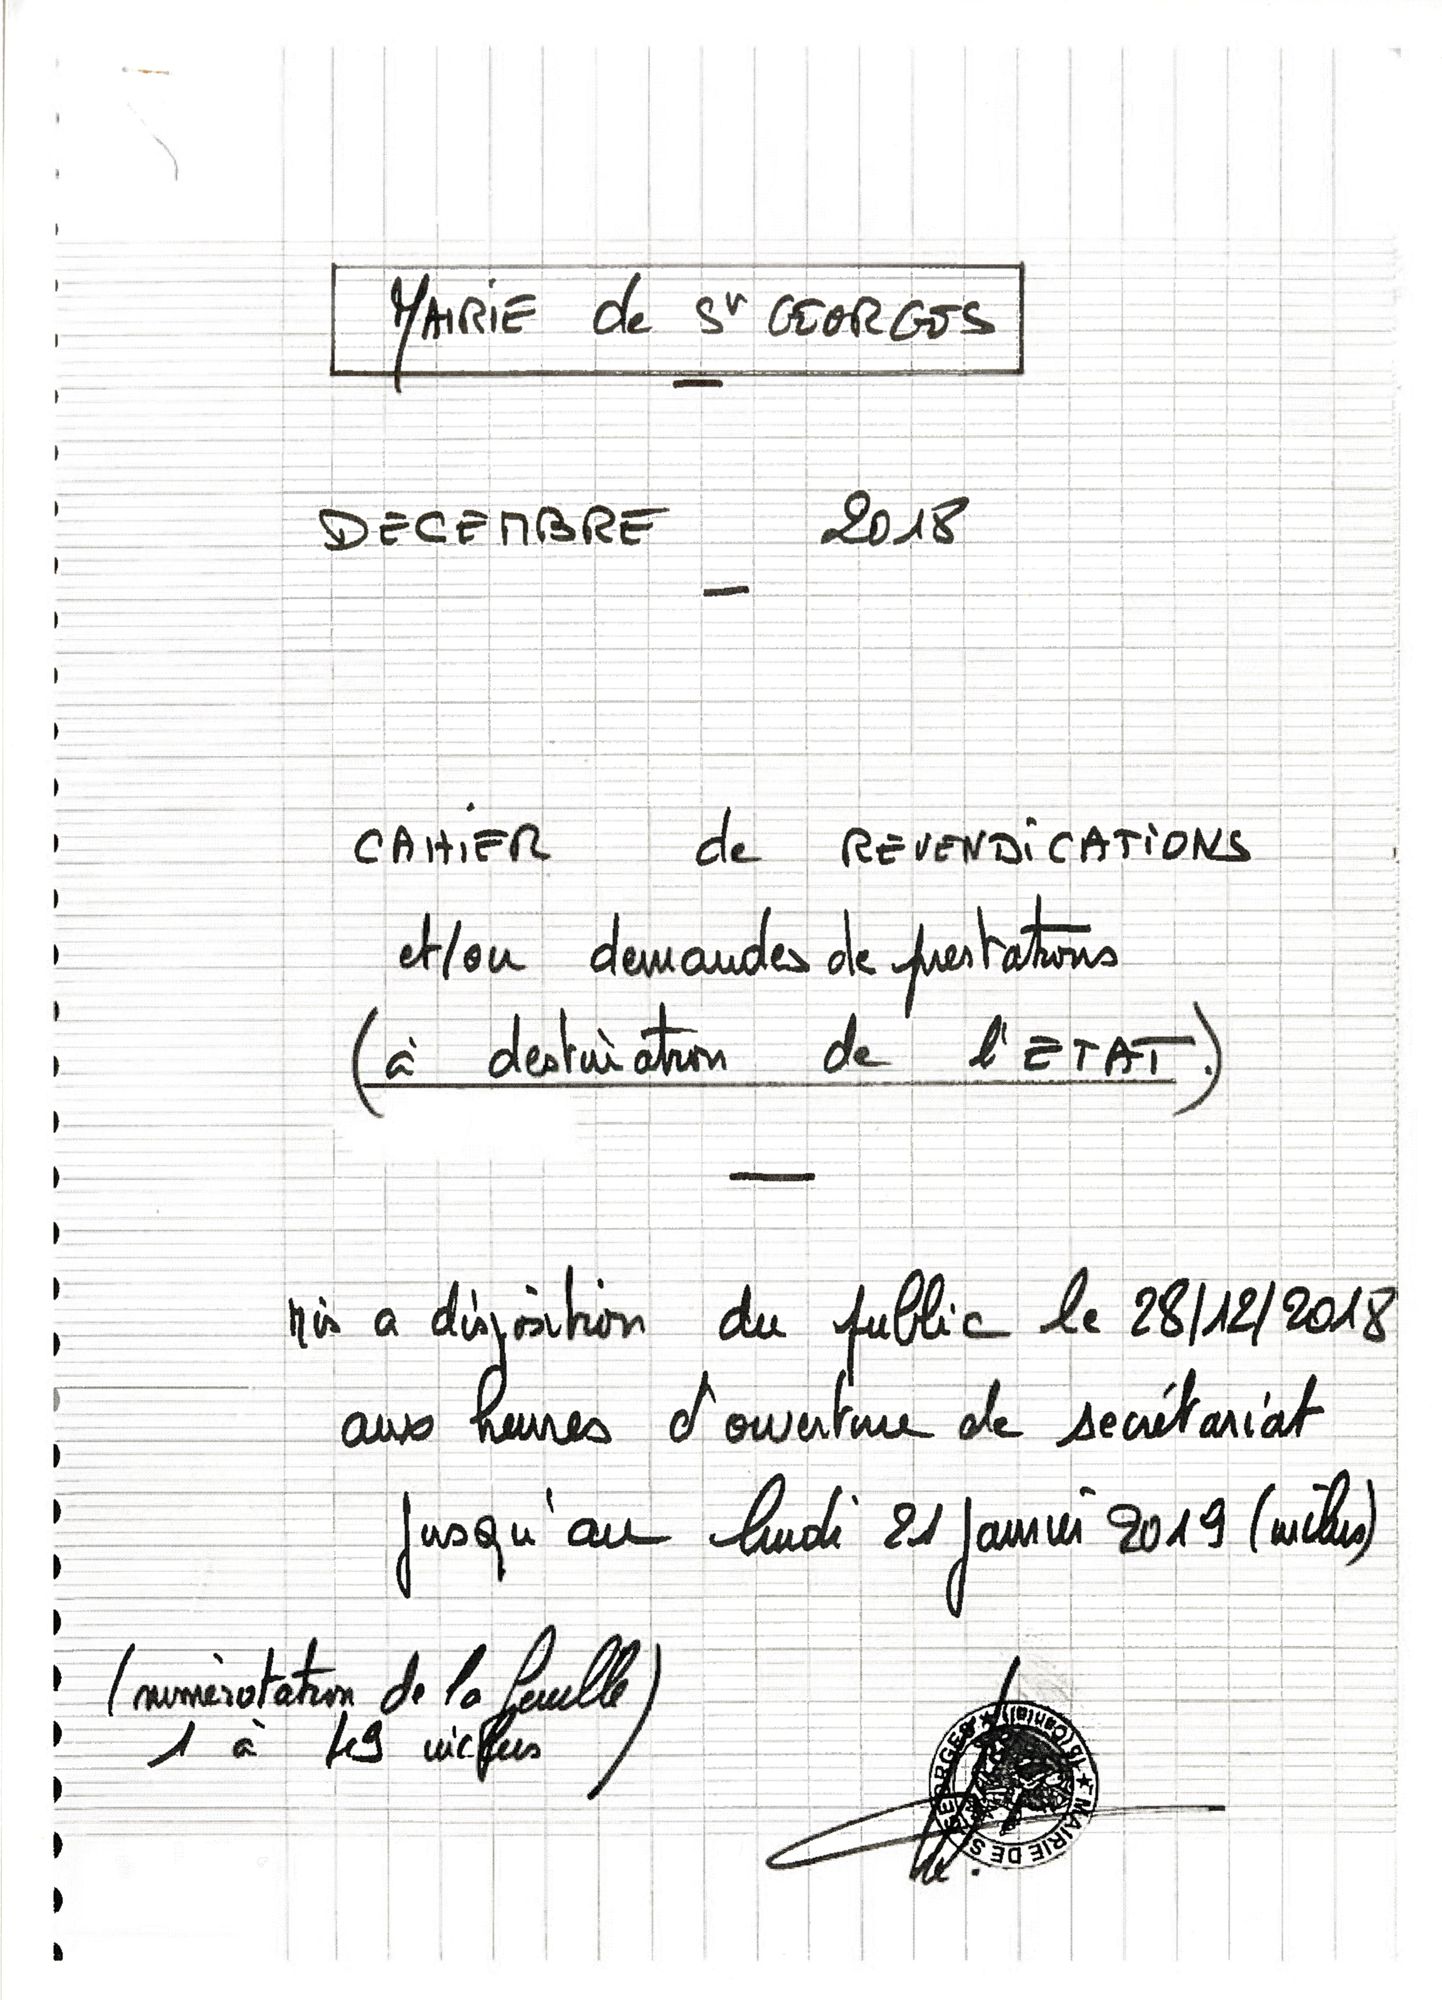 MAIRIE de St GEORGES
DECEMBRE 2018
CAHIER de REVENDICATIONS
et/ou demandes de prestations
(à destination de l'ETAT.)
mis a disposition du public le 28/12/2018
aux heures d'ouverture de secrétariat
jusqu'au lundi 21 janvier 2019 (inclus)
(numérotation de la feuille)
1 à 49 inclus
MAIRIE DE ST GEORGES ★ 15 (Cantal) ★